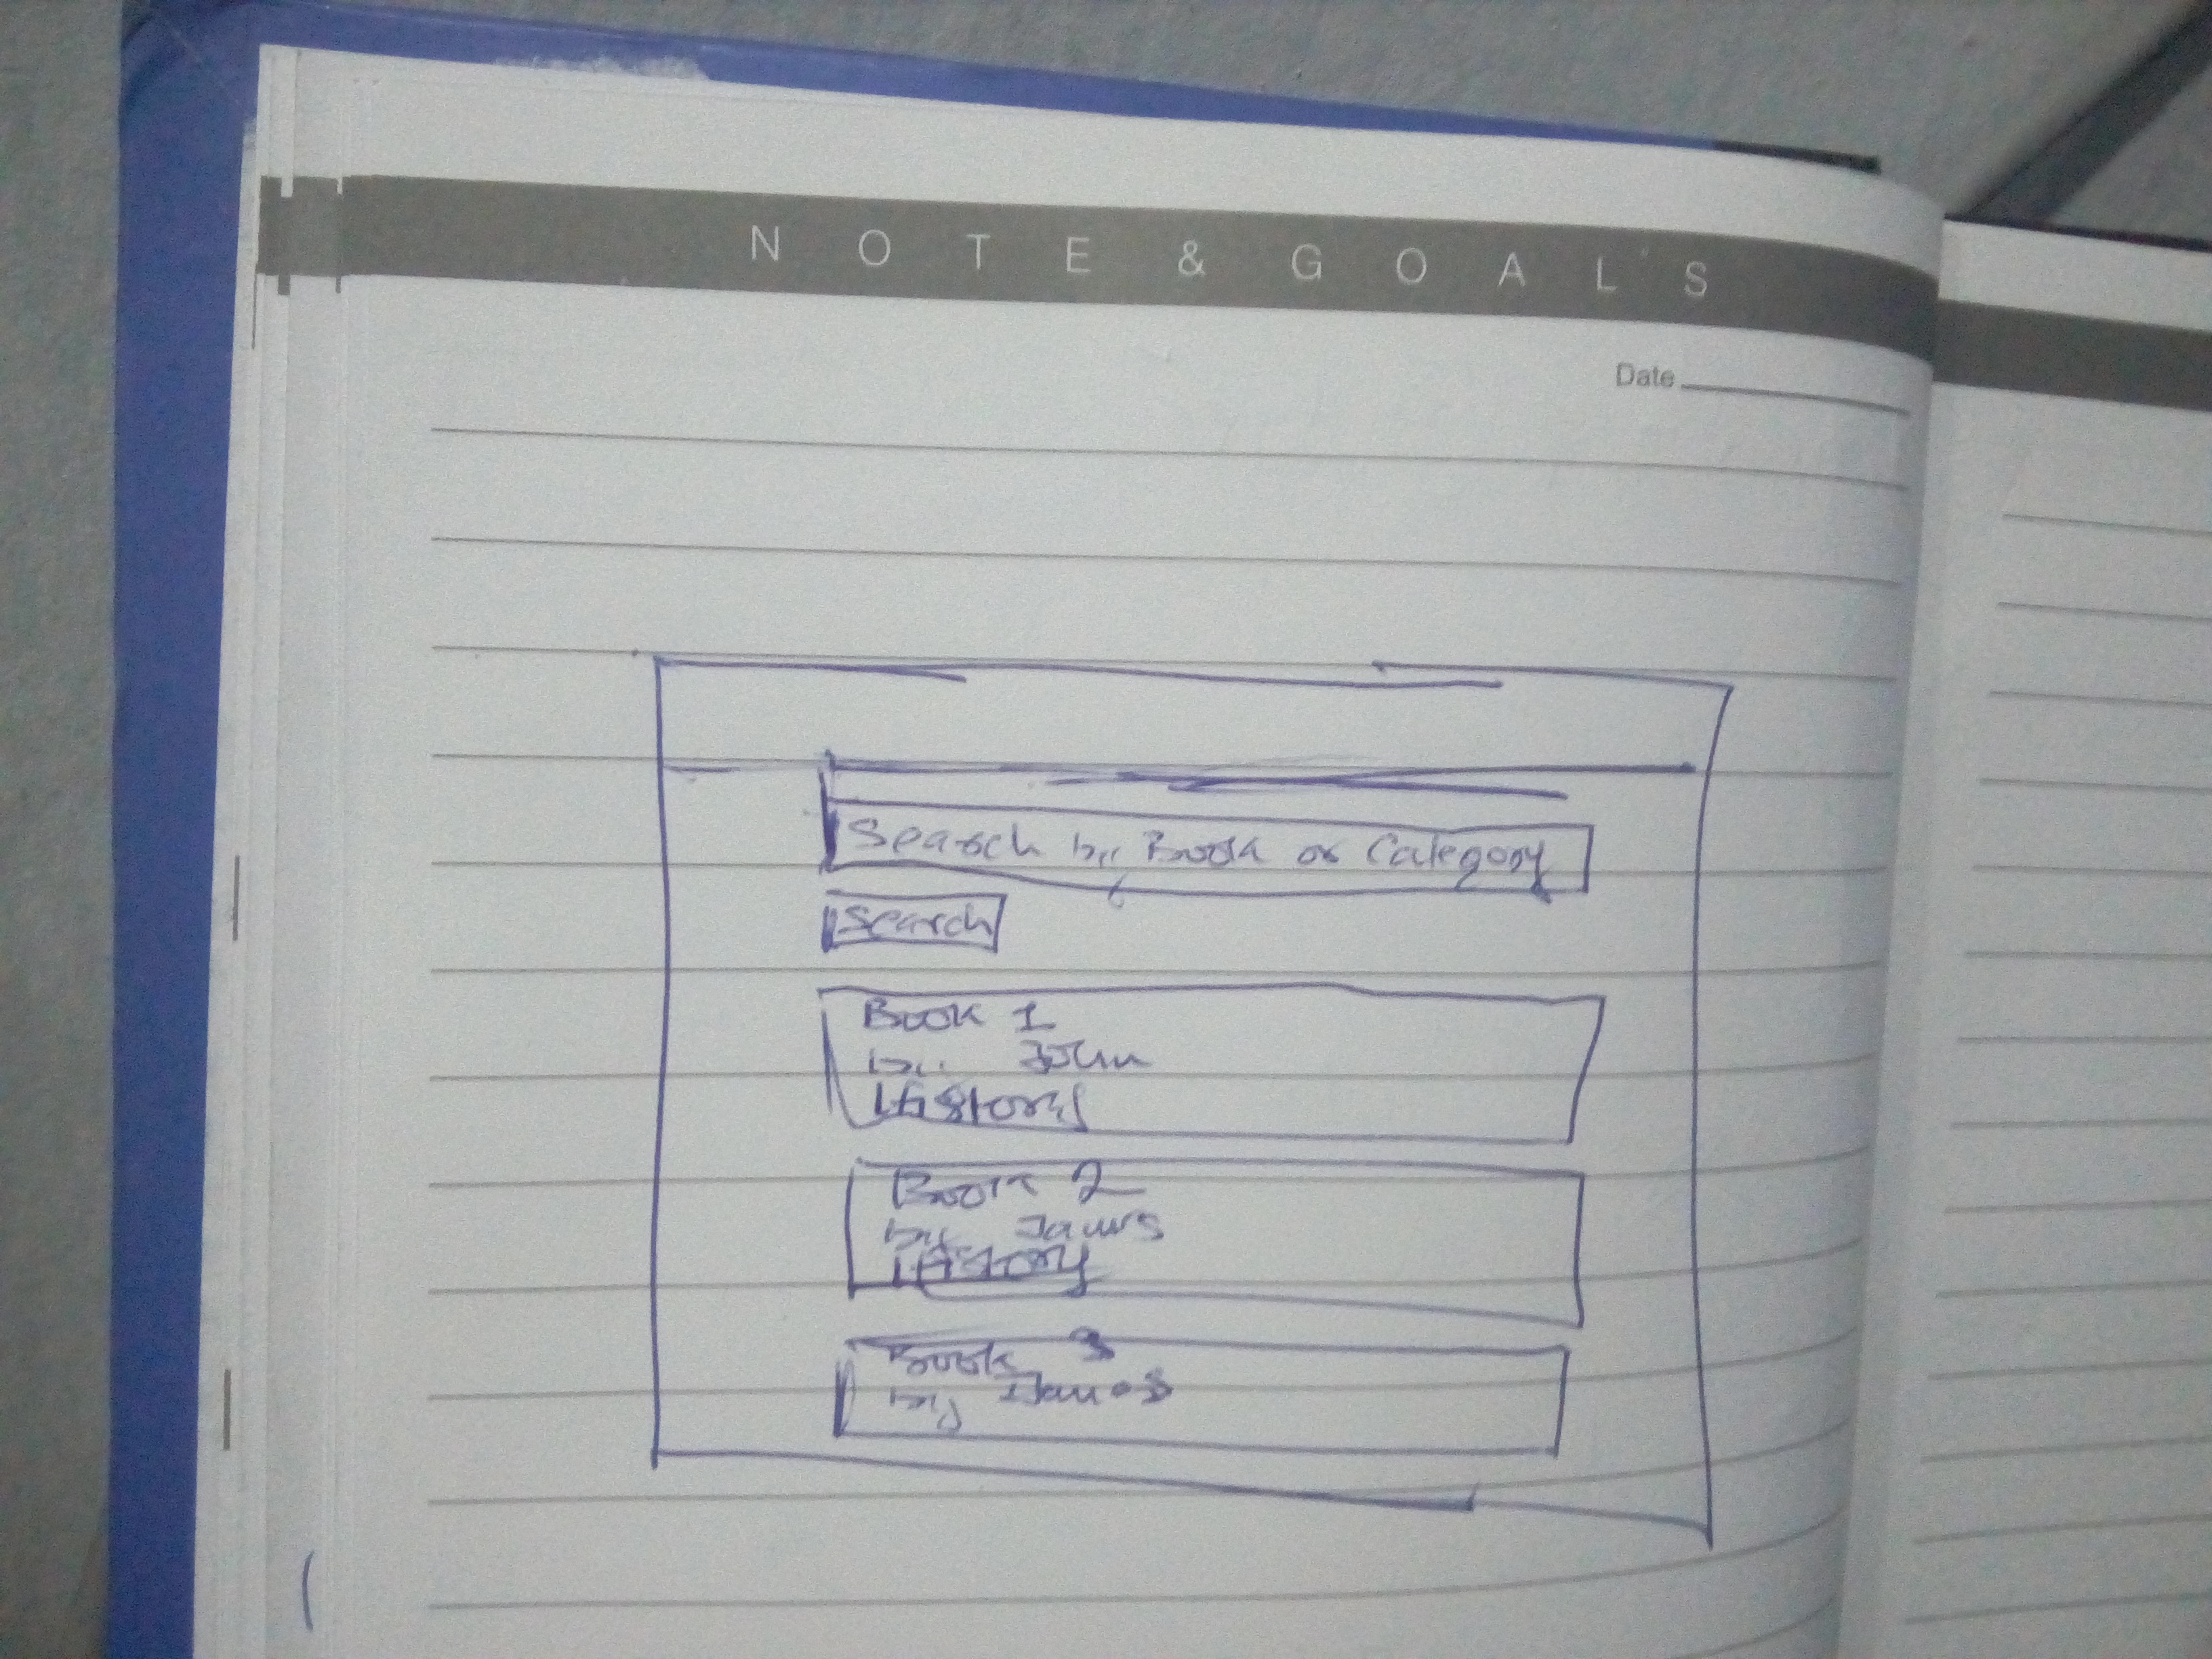 NOTE & GOALS
Date
Search by Book or Category
Search
Book 1
by John
History
Book 2
by James
History
Book 3
by James